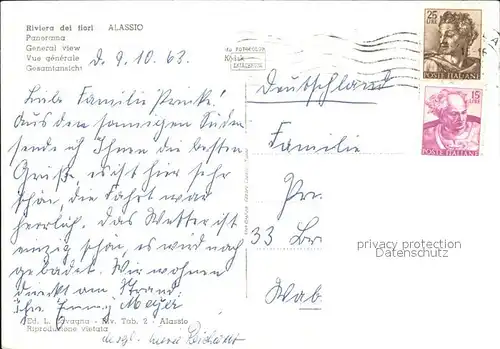 Riviera dei fiori ALASSIO
Panorama
General view
Vue générale
Gesamtansicht
d. 9.10.63.
Liebe Familie
Aus dem sonnigen Süden
sende ich Ihnen die besten
Grüße, es ist hier sehr
schön, die Fahrt war
herrlich. Das Wetter ist
einzig schön, es wird noch
gebadet. Wir wohnen
direkt am Strand.
Ihre Meyer
Ed. L. - Riv. Tab. 2 - Alassio
Riproduzione vietata
desgl.
25
LIRE
POSTE ITALIANE
15
LIRE
POSTE ITALIANE
Deutschland
Familie
Pr
33 Br
Wab
privacy protection
Datenschutz